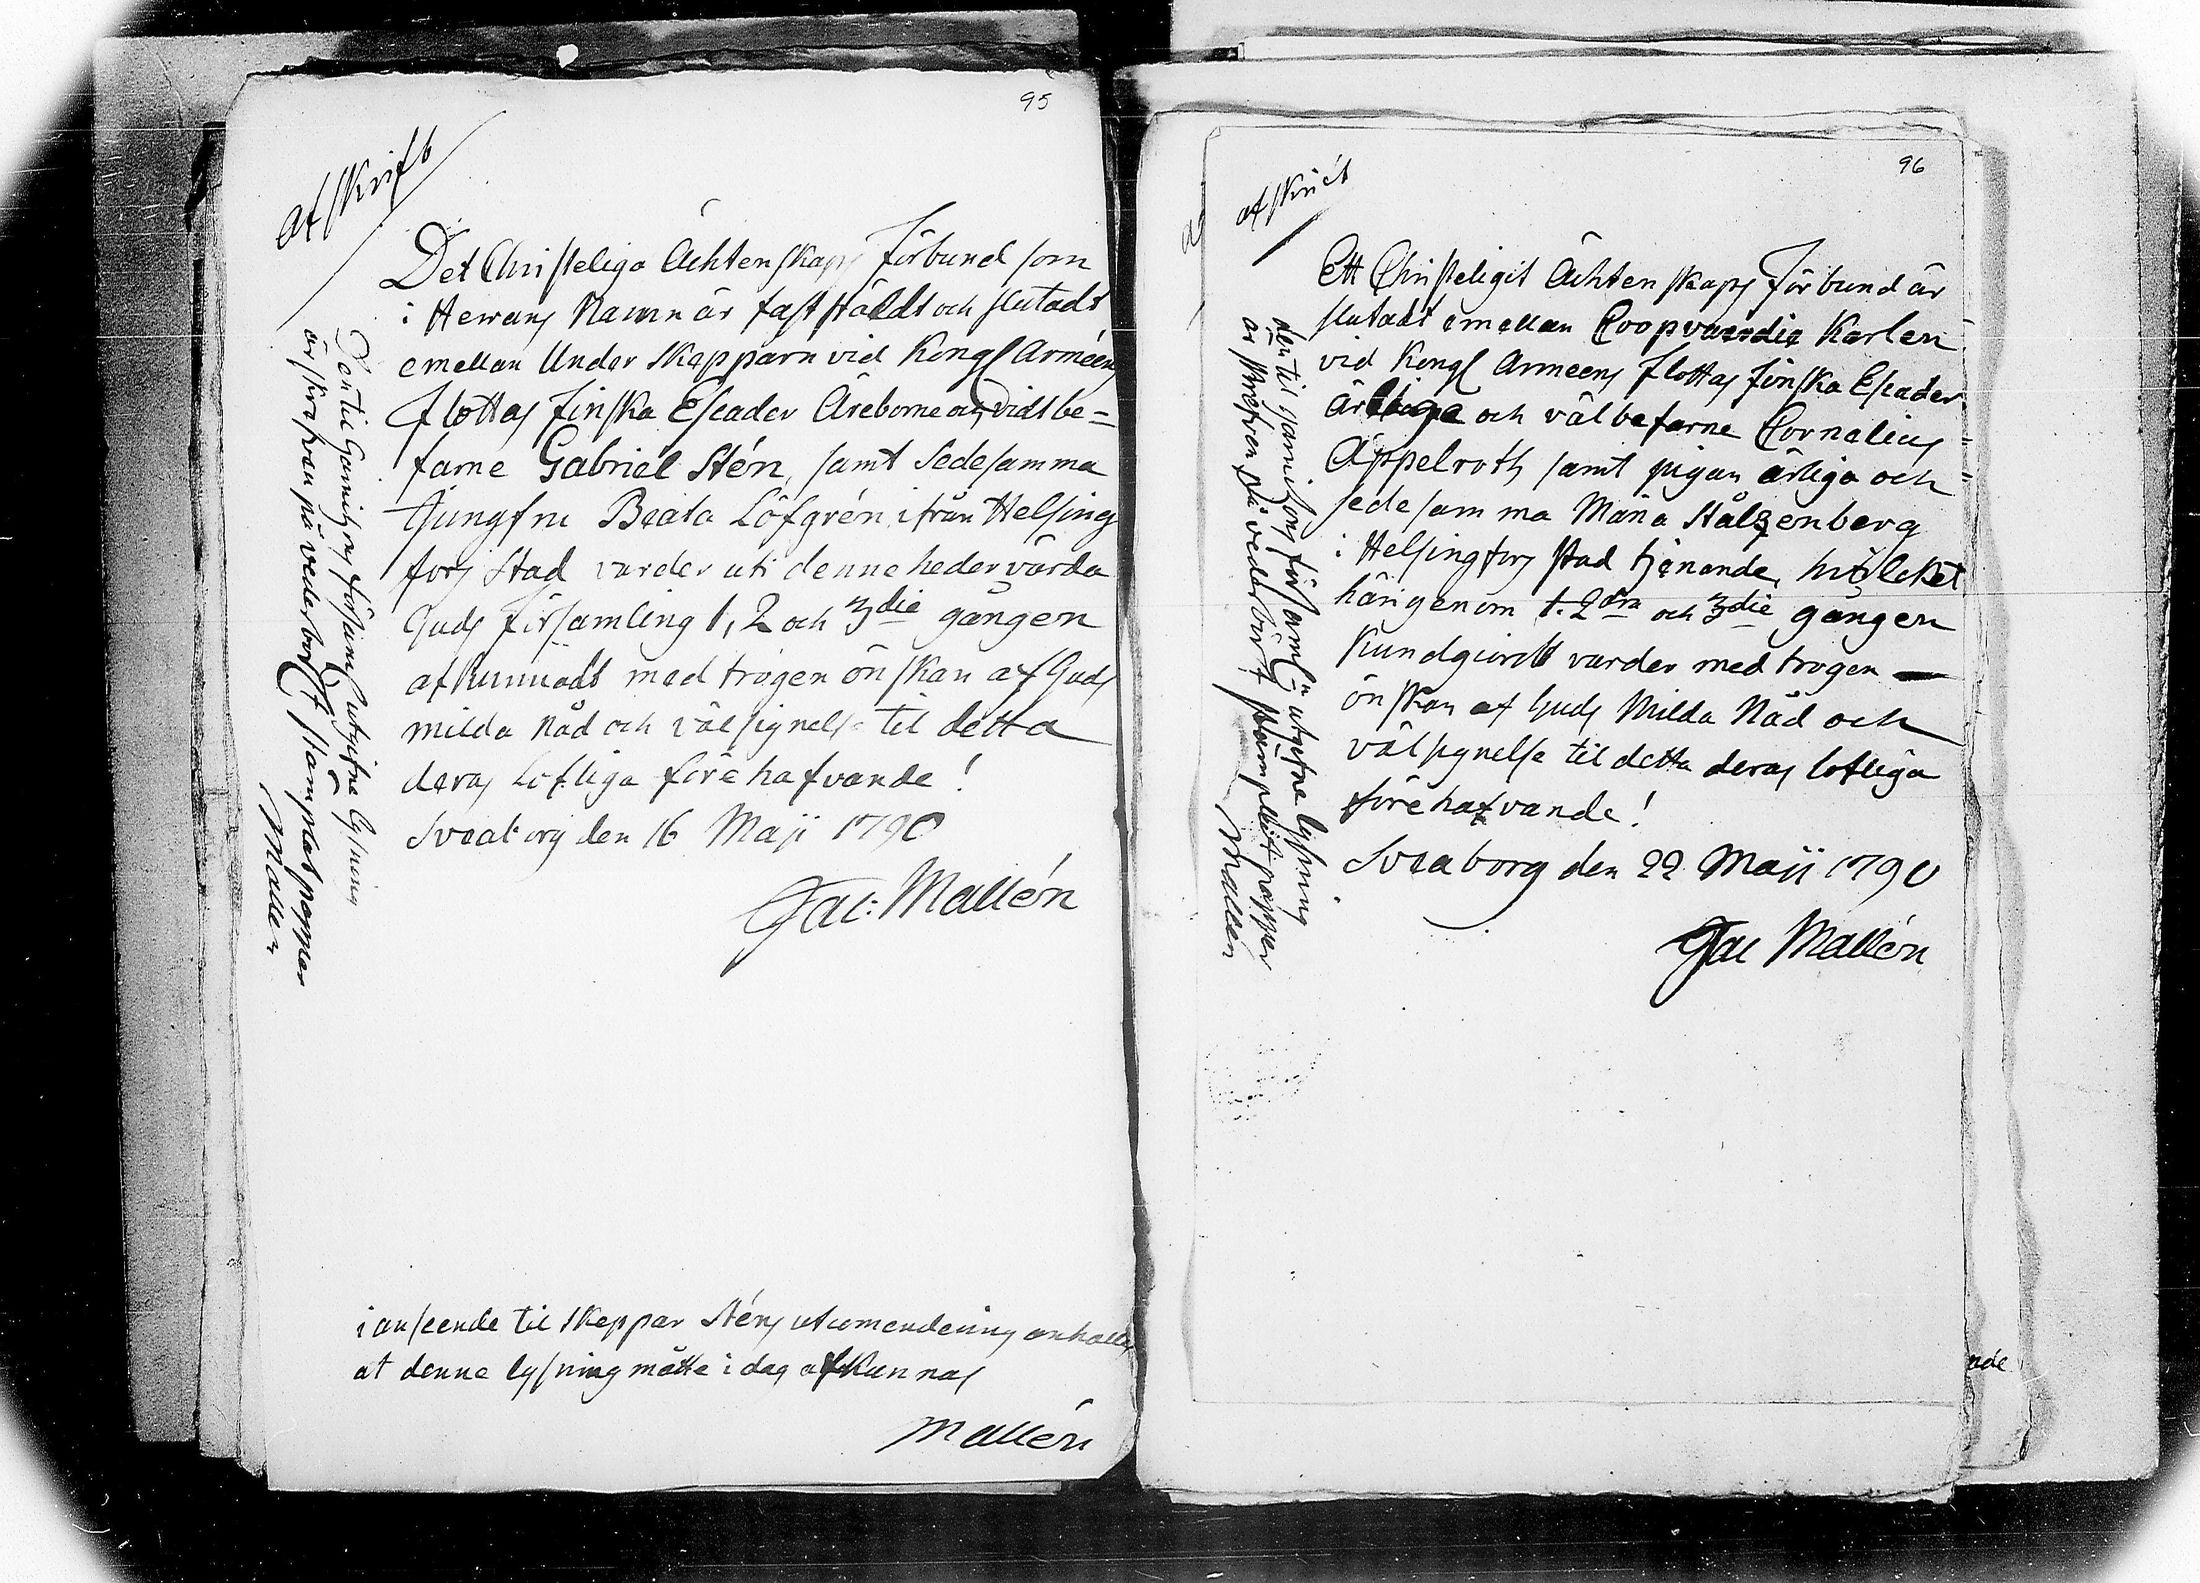 95
afskrift
Det Christeliga Ächtenskaps Förbund som
i Herrans Namn är fastståldt och slutadt
emellan Under Skepparn vid Kongl Arméens
Flottas Finska Escader Äreborne och vidtbe=
farne Gabriel Stén, samt Sedesamma
Jungfru Beata Löfgrén ifrån Helsing
fors Stad varder uti denne hedervärda
Guds församling 1, 2 och 3die gången
afkunnadt med trogen önskan af Guds
milda Nåd och välsignelse til detta
deras Lofliga förehafvande!
Sveaborg den 16 Maji 1790
Jac: Mallén
Den til Garnizons församl utgifne Lysning
är skrefvan på vederbörl stämplat papper
Mallen
i anseende til Skeppar Sténs utcomendering anhålles
at denne lysning måtte i dag afkunnas
Mallén
96
afskrift
Ett Christeligit Ächtenskaps Förbund är
slutadt emellan Coopvaerdie Karlen
vid Kongl Armeens flottas finska Escader
ärlige och välbefarne Cornelius
Äppelroth samt pigan ärliga och
sedesamma Maria Stålzenberg
i Helsingfors stad tjenande, hvilcket
härigenom 1. 2dra och 3die gången
Kundgiordt varder med trogen
önskan af Guds Milda Nåd och
välsignelse til detta deras lofliga
förehafvande!
Sveaborg den 22 Maji 1790
Jac Mallén
den til garnizons församl: utgifne lysning
är skrefven på vederbörl stämplat papper
Mallén
nde